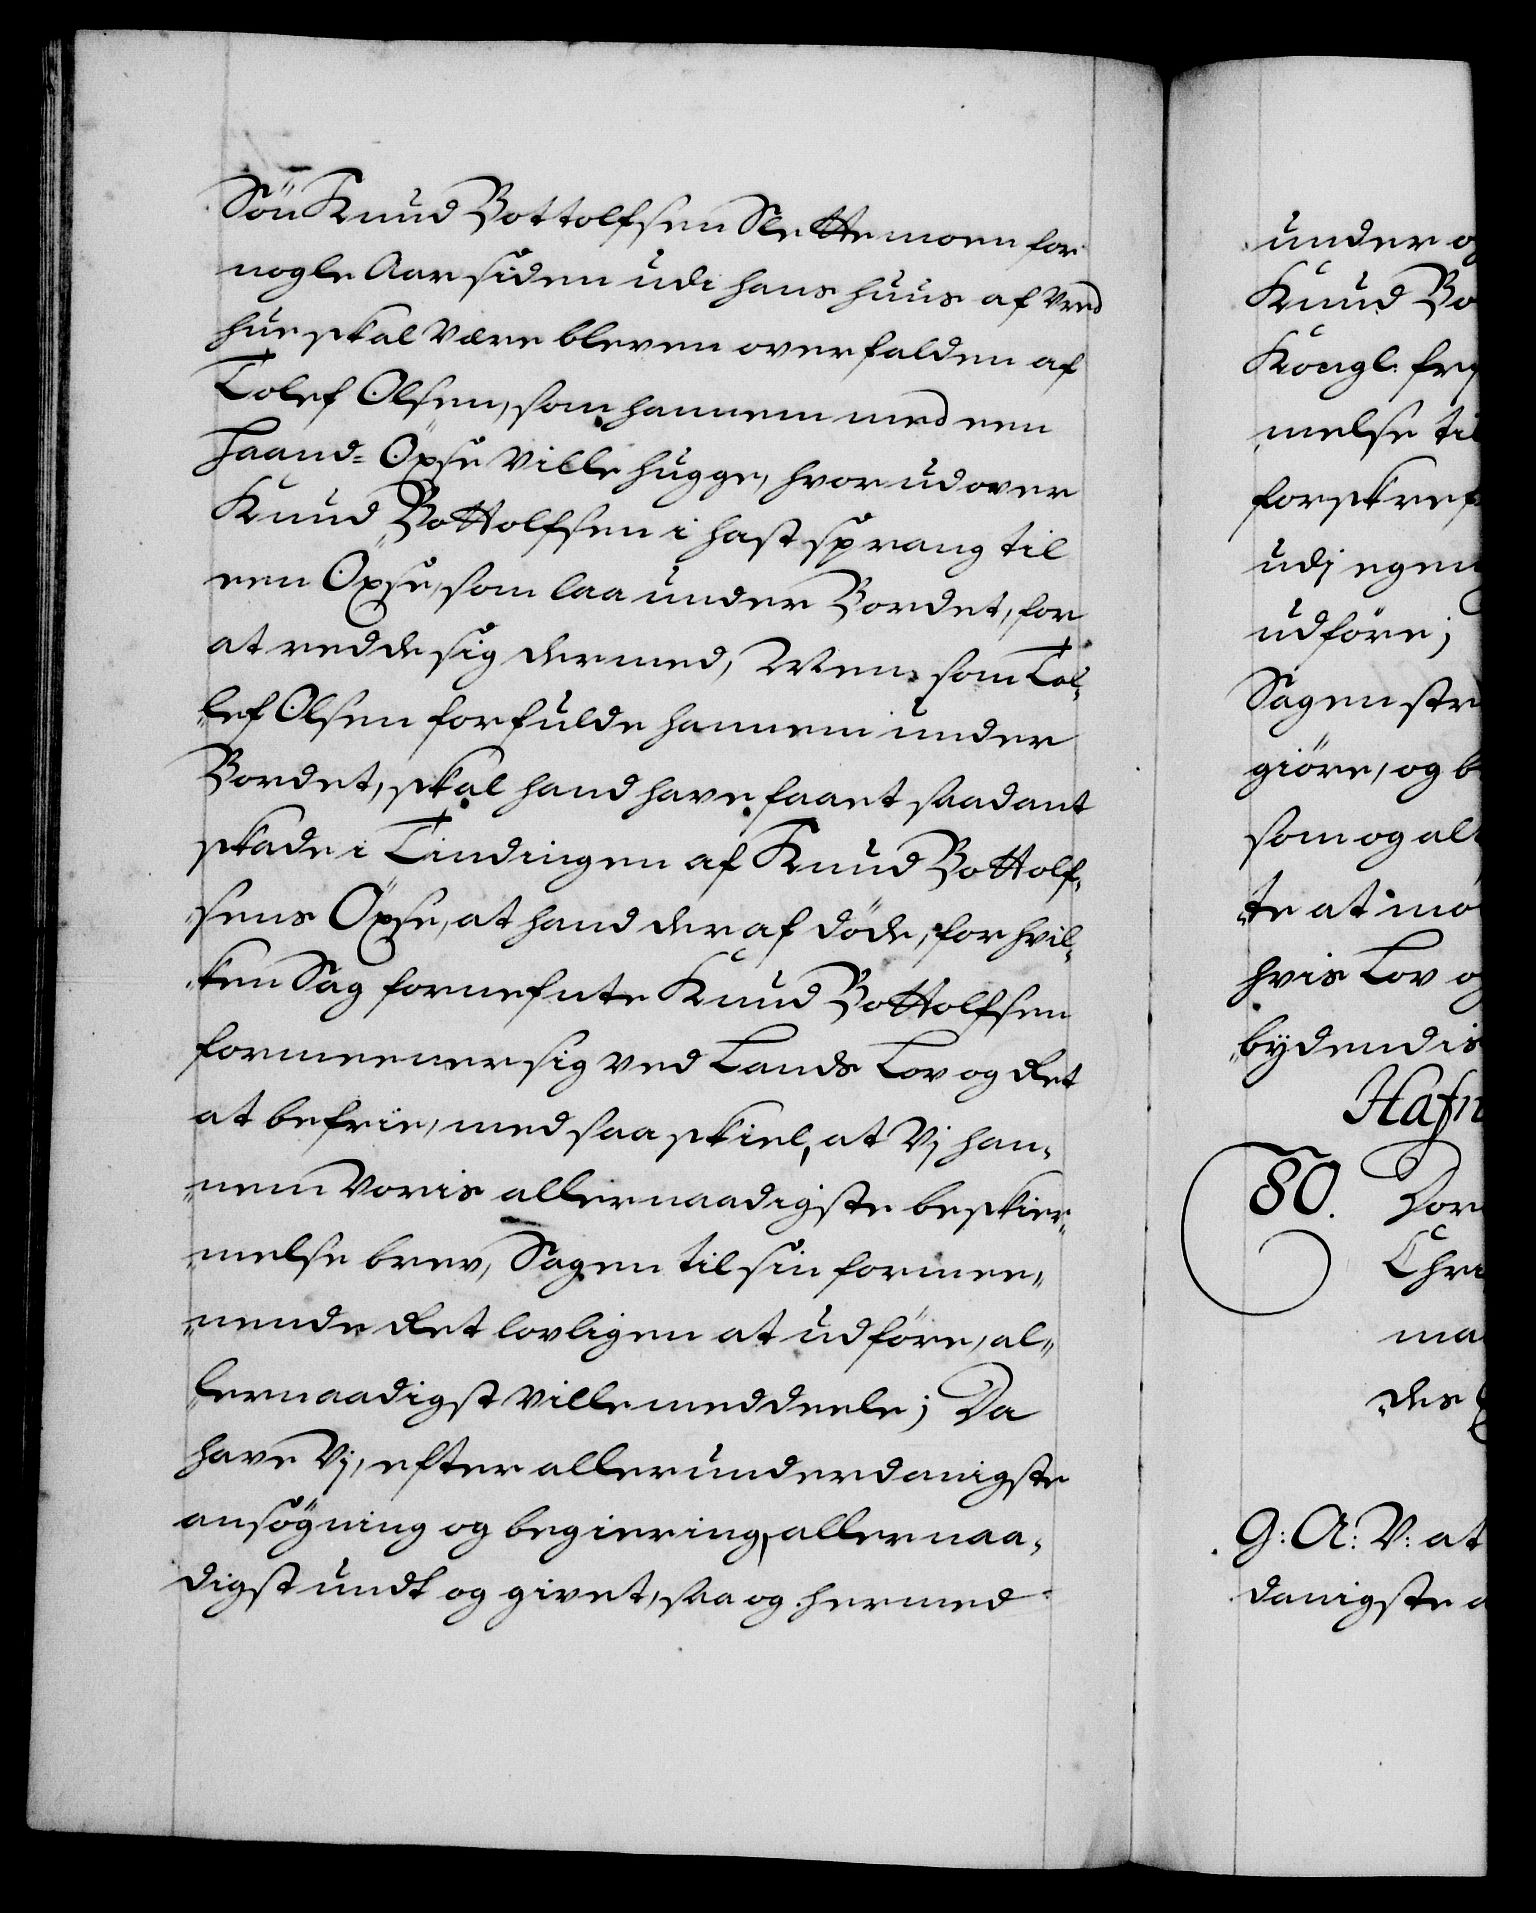 Sön Knud Bottolfsen Slettemoen for
nogle Aar siden udi hans huus af Vred
hue skal være bleven overfalden af
Tolef Olsen, som hannem med een
Haand-Öxse ville hugge, hvorudover
Knud Bottolfsen i hast sprang til
een Öxse, som laa under Bordet, for
at redde sig dermed, Men som Tol-
lef Olsen forfulde hannem under
Bordet, skal hand have faaet saadant
skade i Tindingen af Knud Bottolf-
sens Öxse, at hand deraf döde, for hvil-
ken Sag fornefnte Knud Bottolfsen
formeener sig ved Lands Lov og Ret
at befrie, med saa skiel, at Vj han-
nem Voris allernaadigste beskier-
melse brev, Sagen til sin formee-
nende Ret lovligen at udföre, al-
lernaadigst ville meddeele; Da
have Vj, efter allerunderdanigste
ansögning og begiering, allernaa-
digst undt og givet, saa og hermed
under og
Knud Bo
Kongl: fry
melse til
forskref
udj egen
udföre;
Sagen str
giöre, og b
som og al
te at mö
hvis Lov og
bydendis
Hafn
80. Dor
Chri
ma
des
G: A: V: at
danigste a